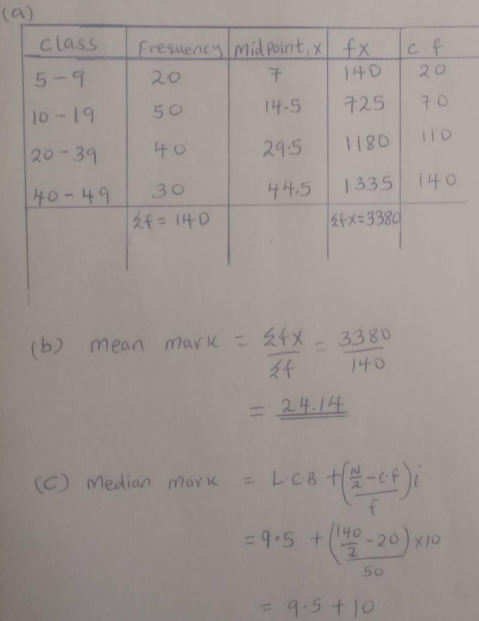 (a)
Class Frequency Midpoint, x fx c.f
5 - 9 20 7 140 20
10 - 19 50 14.5 725 70
20 - 39 40 29.5 1180 110
40 - 49 30 44.5 1335 140
Σf = 140 Σfx = 3380
(b) mean mark = Σfx / Σf = 3380 / 140
= 24.14
(C) Median mark = L.C.B + ((N/2 - c.f) / f) i
= 9.5 + ((140/2 - 20) / 50) × 10
= 9.5 + 10